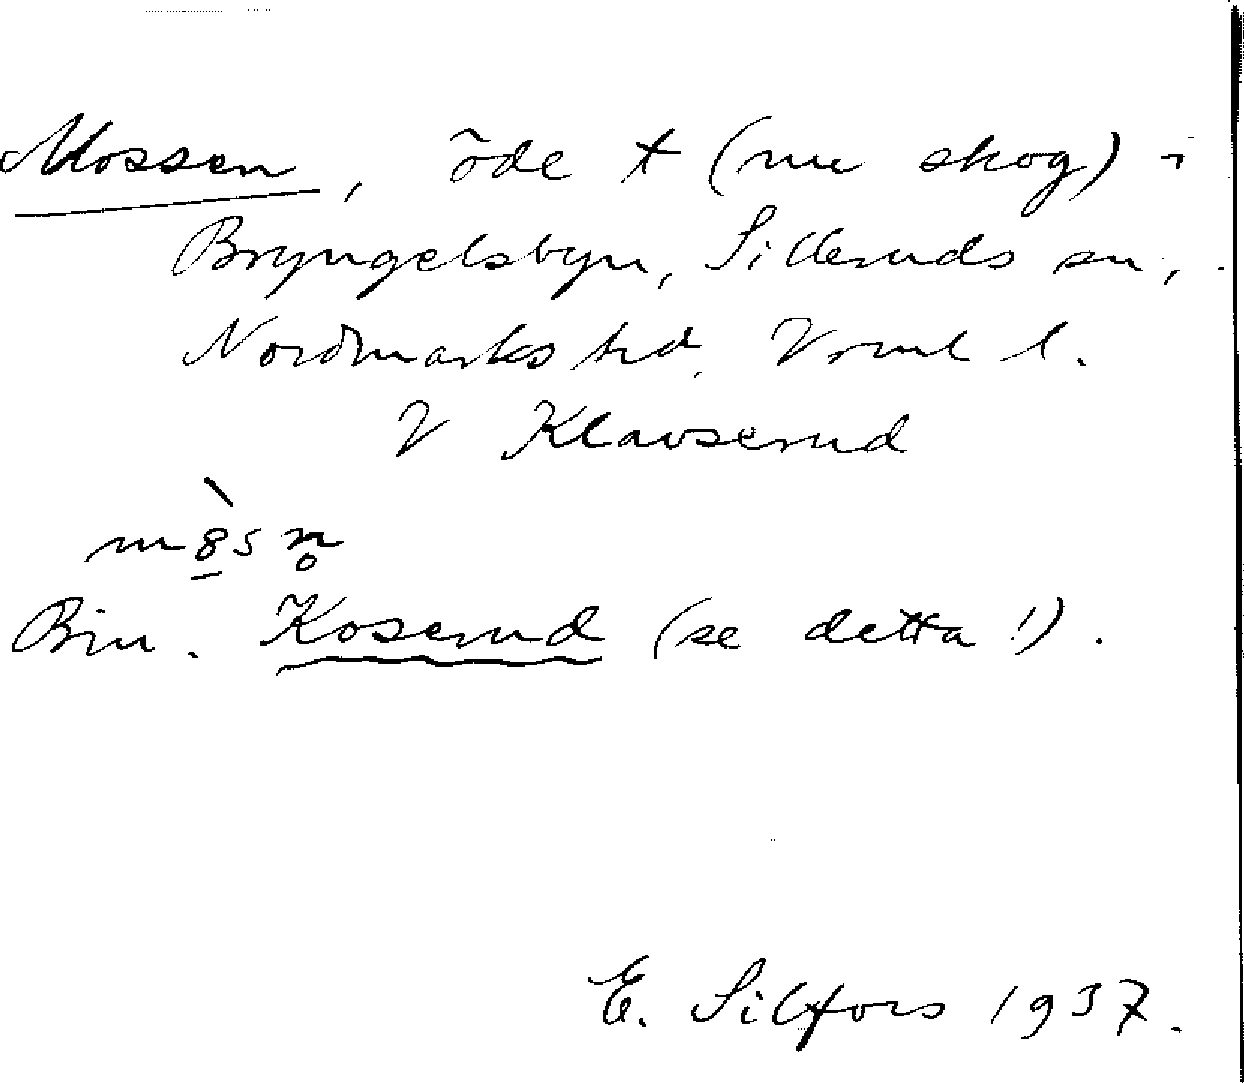 Mossen, öde t (nu skog) i
Bryngelsbyn, Silleruds sn,
Nordmarks hd. Vrml l.
V Klavserud
mȣ̱̀sn̥
Bin. Koserud (se detta!).
E. Silfors 1937.